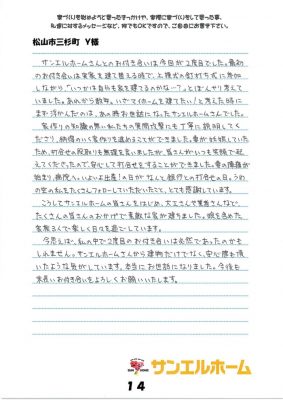 家づくりを始めようと思ったきっかけや、実際に家づくりをして思った事、
私達に対するメッセージなど、何でもOKですので、ご自由にお書き下さい。
松山市三杉町 Y様
サンエルホームさんとのお付き合いは今回が2度目でした。最初
のお付き合いは実家を建て替える時で、上棟式の釘打ち式に参加
しながら、“いつかは自分も家を建てるのかな〜?”とぼんやり考えて
いました。あれから数年。いざ“マイホームを建てたい!”と考えた時に
まず浮かんだのは、あの時お世話になったサンエルホームさんでした。
家作りの知識の無い私たちの質問攻撃にも丁寧に説明してく
ださり、納得のいく家作りを進めることができました。妻が妊娠していた
ため、打合せの段取りも無理を言いましたが、皆さんがいつも笑顔で迎
えてくださったので、安心して打合せをすることができました。妻の陣痛が
始まり、病院へ。いよいよ出産!の日が、なんと銀行との打合せの日。うわ
の空の私をたくさんフォローしていただいたこと、とても感謝しています。
こうしてサンエルホームの皆さんをはじめ、大工さんや業者さんなど、
たくさんの皆さんのおかげで素敵な家が建ちました。娘を含めた
家族3人で楽しく日々を過ごしています。
今思えば、私の中で2度目のお付き合いは必然であったのかも
しれません。サンエルホームさんから建物だけでなく、安心感も頂
いたような気がしています。本当にお世話になりました。今後も
末長いお付き合いをよろしくお願いいたします。
サンエルホーム
14